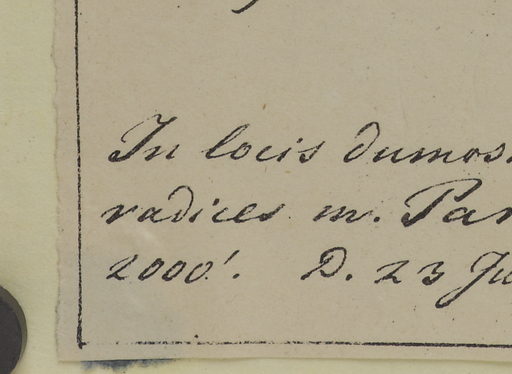 In locis dumos
radices m. Par
2000'. D. 23 Ju